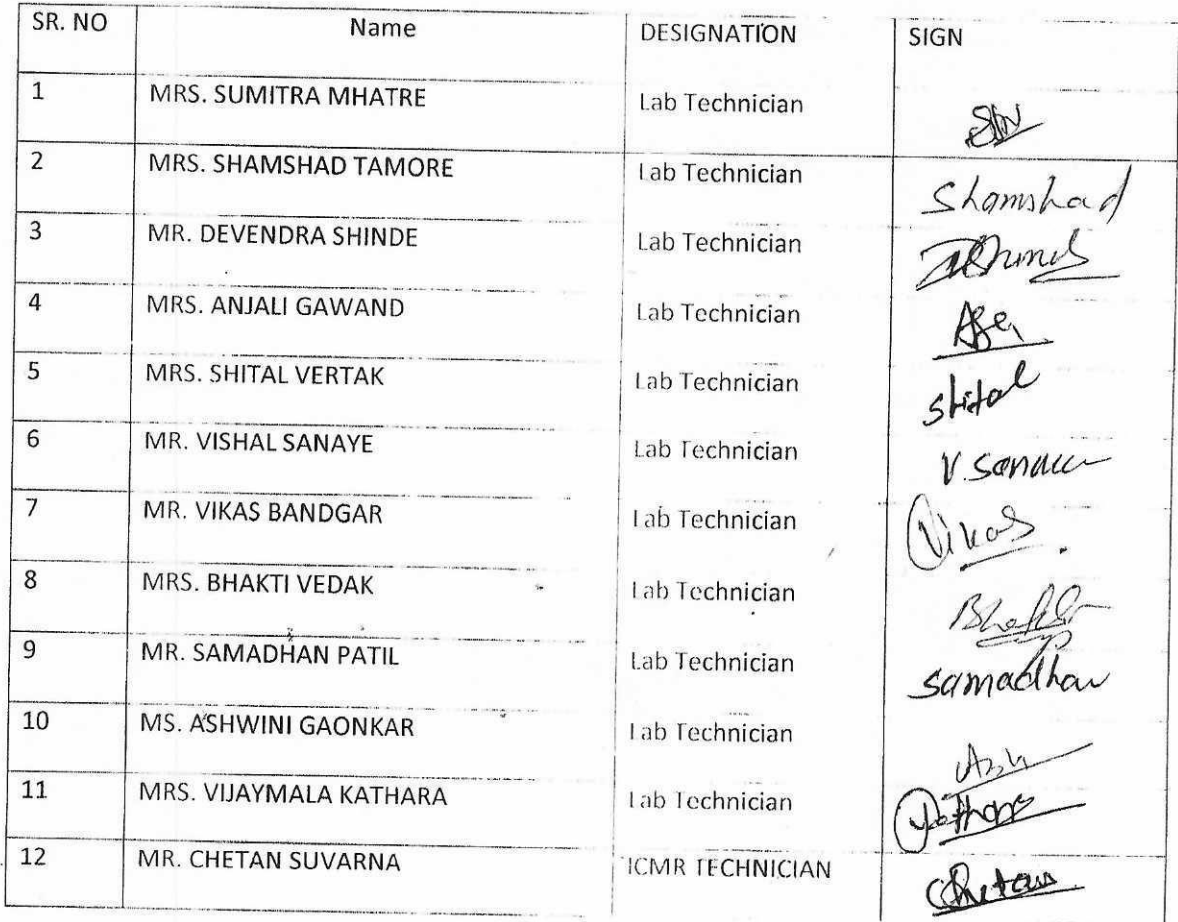 SR. NO Name DESIGNATION SIGN
1 MRS. SUMITRA MHATRE Lab Technician
2 MRS. SHAMSHAD TAMORE Lab Technician Shamshad
3 MR. DEVENDRA SHINDE Lab Technician
4 MRS. ANJALI GAWAND Lab Technician
5 MRS. SHITAL VERTAK Lab Technician shital
6 MR. VISHAL SANAYE Lab Technician V.
7 MR. VIKAS BANDGAR Lab Technician Vikas
8 MRS. BHAKTI VEDAK Lab Technician
9 MR. SAMADHAN PATIL Lab Technician samadhan
10 MS. ASHWINI GAONKAR Lab Technician
11 MRS. VIJAYMALA KATHARA Lab Technician
12 MR. CHETAN SUVARNA ICMR TECHNICIAN Chetan